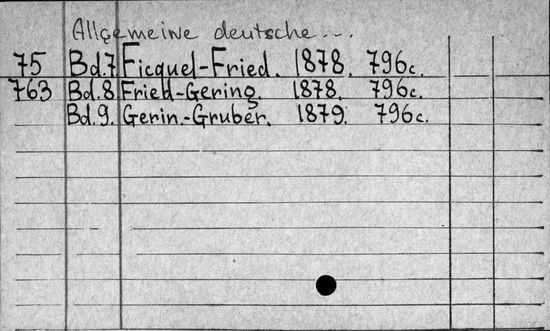 Allgemeine deutsche...
75 Bd.7 Ficquel-Fried. 1878. 796c.
763 Bd.8 Fried-Gering. 1878. 796c.
Bd.9. Gerin.-Gruber. 1879. 796c.